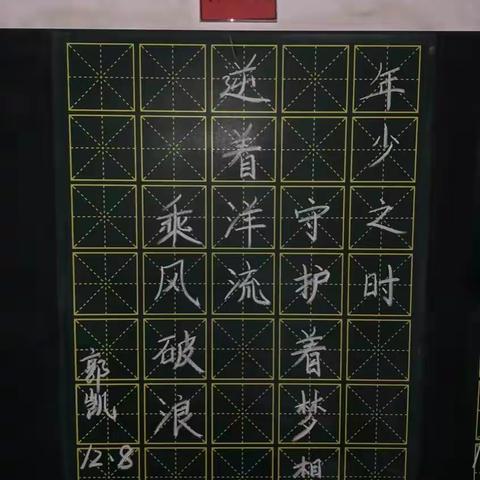 年少之时
守护着梦相
逆着洋流
乘风破浪
郭凯
12.8